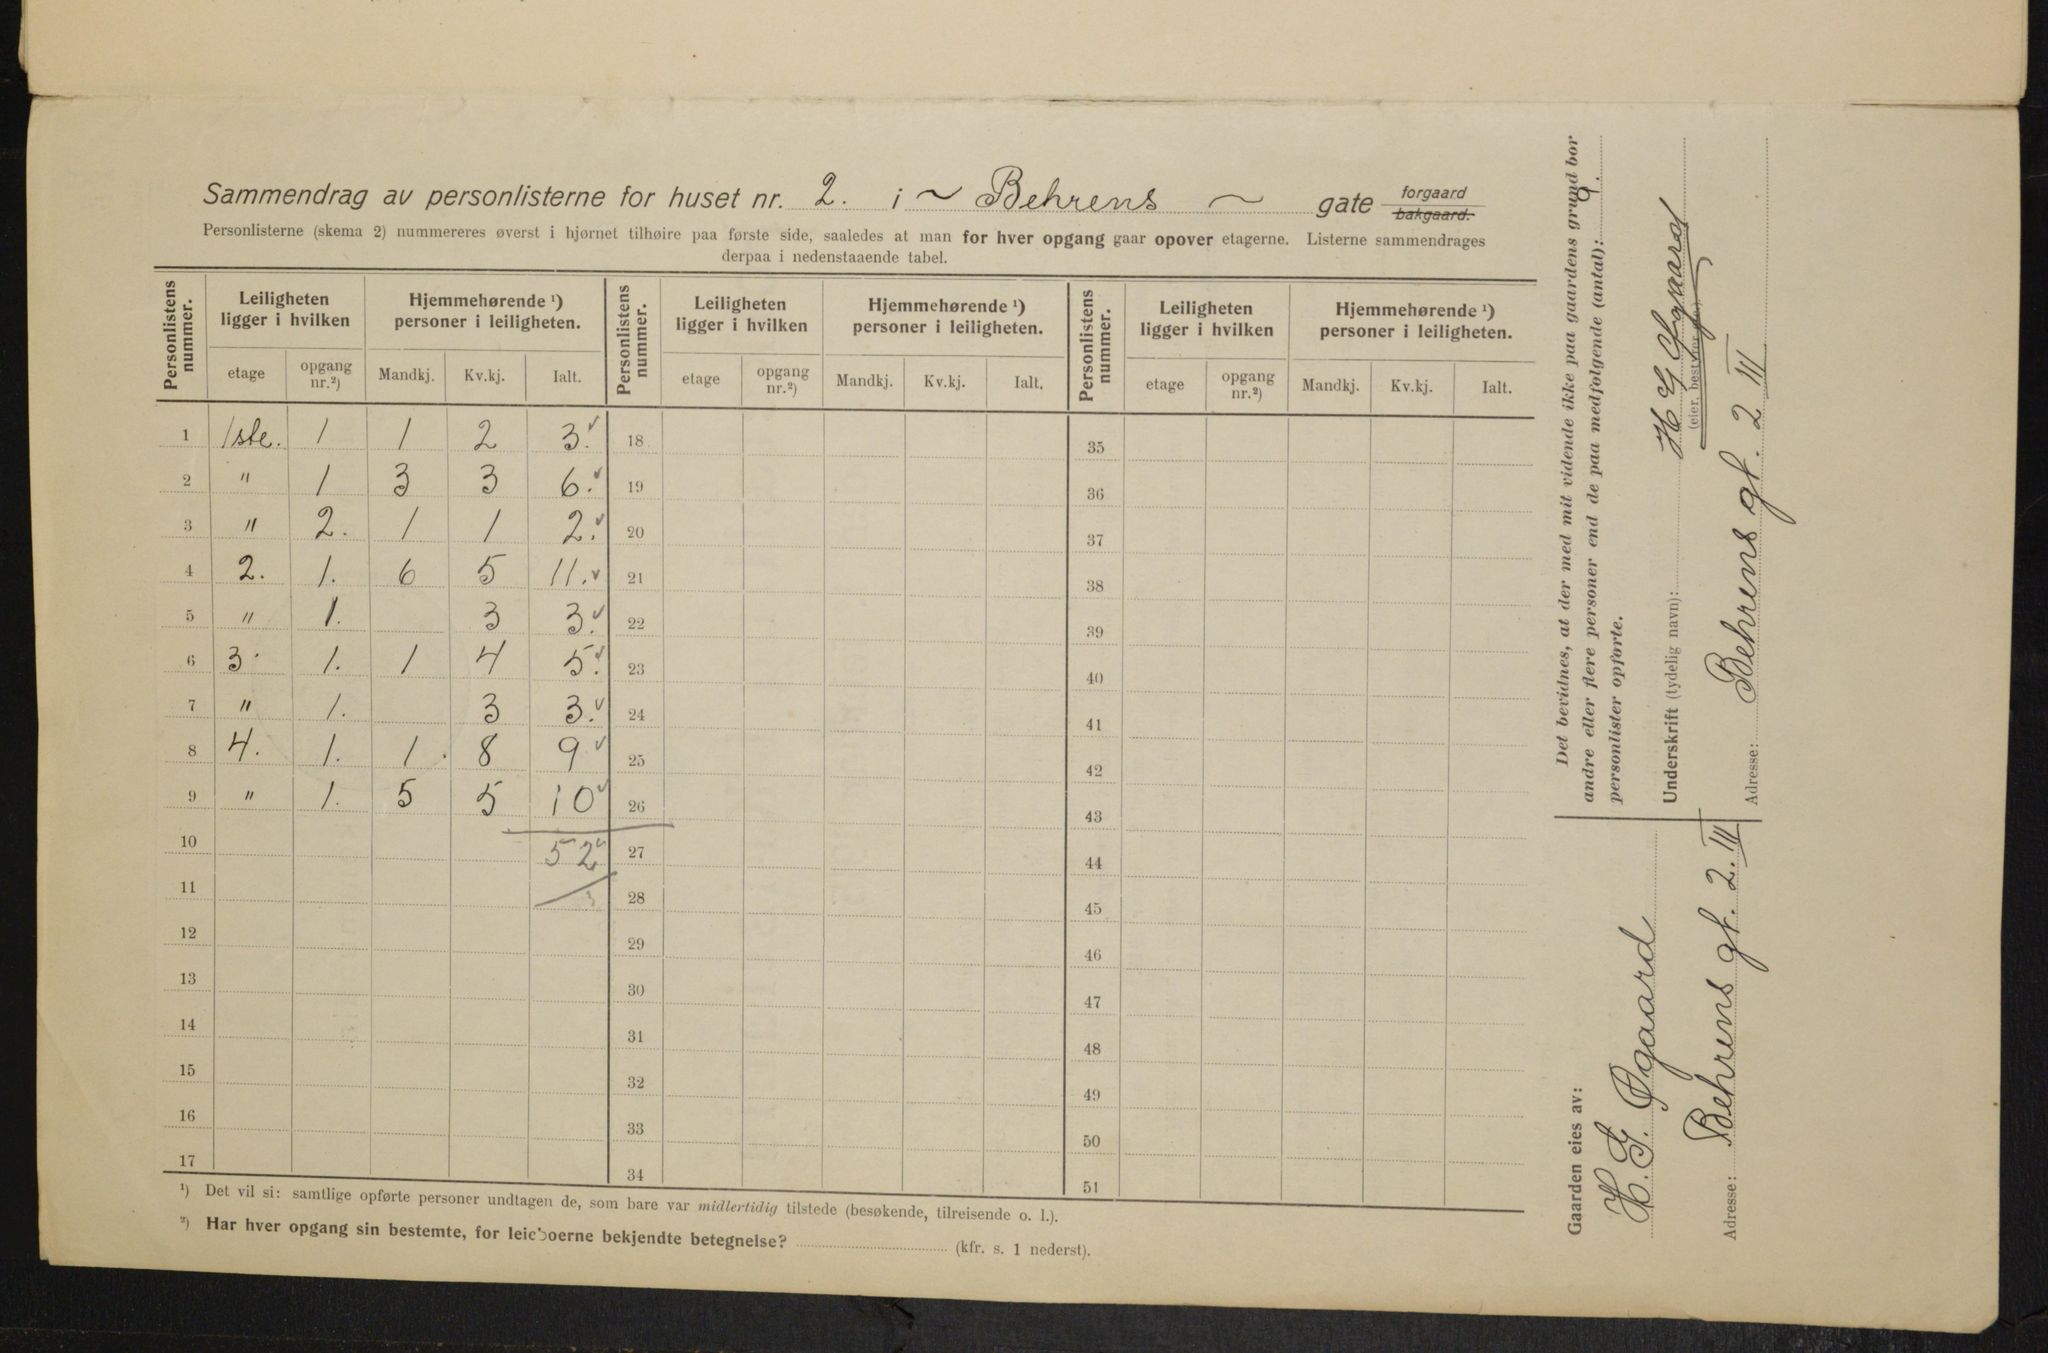 Sammendrag av personlisterne for huset nr. 2. i ~ Behrens ~ gate forgaard bakgaard.
Personlisterne (skema 2) nummereres øverst i hjørnet tilhøire paa første side, saaledes at man for hver opgang gaar opover etagerne. Listerne sammendrages
derpaa i nedenstaaende tabel.
Personlistens nummer. Leiligheten ligger i hvilken Hjemmehørende ¹) personer i leiligheten. Personlistens nummer. Leiligheten ligger i hvilken Hjemmehørende ¹) personer i leiligheten. Personlistens nummer. Leiligheten ligger i hvilken Hjemmehørende ¹) personer i leiligheten.
etage opgang nr.²) Mandkj. Kv.kj. Ialt. etage opgang nr.²) Mandkj. Kv.kj. Ialt. etage opgang nr.²) Mandkj. Kv.kj. Ialt.
1 1ste. 1 1 2 3. 18 35
2 " 1 3 3 6. 19 36
3 " 2. 1 1 2. 20 37
4 2. 1. 6 5 11. 21 38
5 " 1. 3 3. 22 39
6 3. 1. 1 4 5. 23 40
7 " 1. 3 3. 24 41
8 4. 1. 1. 8 9 25 42
9 " 1. 5 5 10 26 43
10 52 27 44
11 28 45
12 29 46
13 30 47
14 31 48
15 32 49
16 33 50
17 34 51
¹) Det vil si: samtlige opførte personer undtagen de, som bare var midlertidig tilstede (besøkende, tilreisende o. l.).
²) Har hver opgang sin bestemte, for leieboerne bekjendte betegnelse? (kfr. s. 1 nederst).
Det bevidnes, at der med mit vidende ikke paa gaardens grund bor
andre eller flere personer end de paa medfølgende (antal): 9.
personlister opførte.
Underskrift (tydelig navn): H G Øgaard
(eier, bestyrer
Adresse: Behrens gt. 2 III
Gaarden eies av:
H. G. Øgaard
Adresse: Behrens gt. 2. III